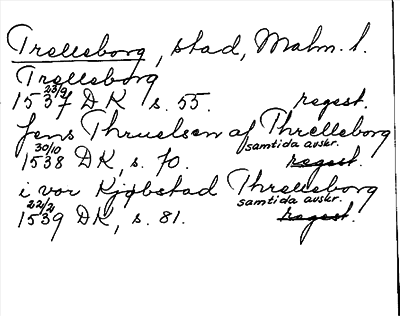 Trelleborg, stad, Malm. l.
Trelleborg
1537 23/9 DK s. 55. regest.
Jens Thruelsen af Threlleborg
1538 30/10 DK, s. 70. samtida avskr. regest.
i vor Kjøbstad Threlleborg
1539 22/2 DK, s. 81. samtida avskr. regest.